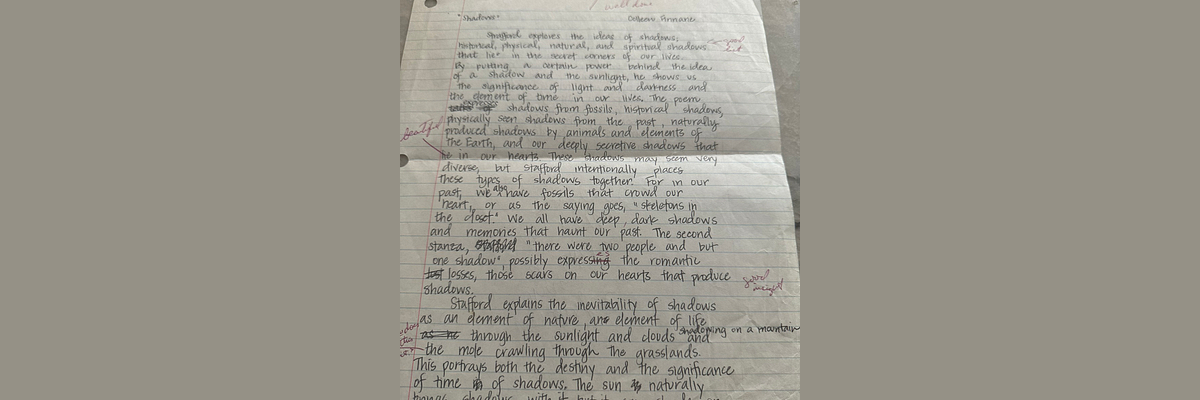 well done
"Shadows"
Stafford explores the ideas of shadows;
good
historical, physical, natural, and spiritual shadows
that lie" in the secret corners of our lives.
By putting a certain power behind the idea
of a shadow and the sunlight, he shows us
the significance of light and darkness and
the element of time in our lives. The poem
expresses
shadows from fossils, historical shadows,
physically seen shadows from the past, naturally
produced shadows by animals and elements of
The Earth, and our deeply secretive shadows that
lie in our hearts. These shadows may seem very
diverse, but Stafford intentionally places
these types of shadows together. For in our
past, we also have fossils that crowd our
heart, or as the saying goes, "skeletons in
the closet." We all have deep, dark shadows
and memories that haunt our past. The second
stanza, "there were two people and but
one shadow", possibly expresses the romantic
losses, those scars on our hearts that produce
good
insight
shadows.
Stafford explains the inevitability of shadows
as an element of nature, an element of life
through the sunlight and clouds "shadowing on a mountain and
the mole crawling through the grasslands.
This portrays both the destiny and the significance
of time of shadows. The sun naturally
brings shadows with it but it